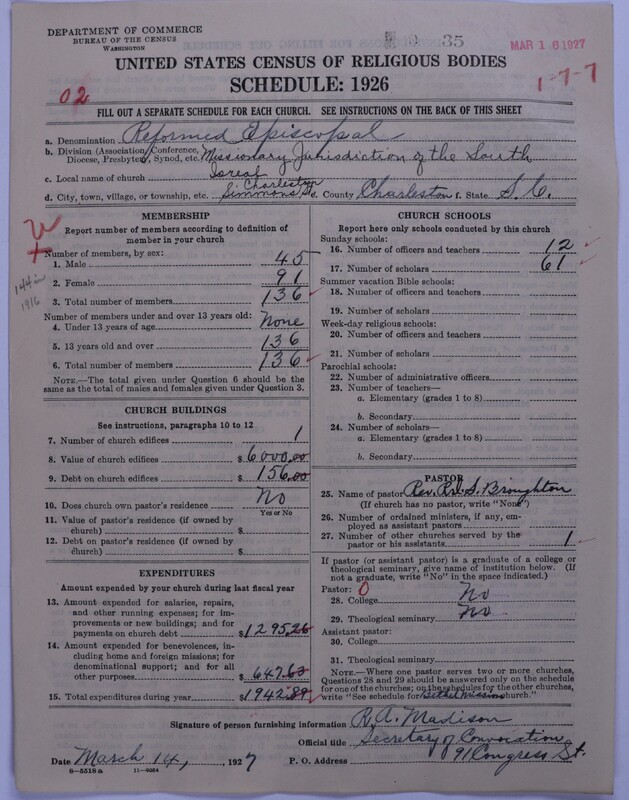 DEPARTMENT OF COMMERCE
BUREAU OF THE CENSUS
WASHINGTON
35
MAR 16 1927
UNITED STATES CENSUS OF RELIGIOUS BODIES
SCHEDULE: 1926
1-7-7
02
FILL OUT A SEPARATE SCHEDULE FOR EACH CHURCH. SEE INSTRUCTIONS ON THE BACK OF THIS SHEET
a. Denomination Reformed Episcopal
b. Division (Association, Conference, Diocese, Presbytery, Synod, etc. Missionary Jurisdiction of the South
c. Local name of church Isreal
d. City, town, village, or township, etc. Charleston Simmons St e. County Charleston f. State S.C.
MEMBERSHIP
Report number of members according to definition of
member in your church
Number of members, by sex:
1. Male 45
2. Female 91
144 in 1916
3. Total number of members 136
Number of members under and over 13 years old:
4. Under 13 years of age None
5. 13 years old and over 136
6. Total number of members 136
NOTE.—The total given under Question 6 should be
same as the total of males and females given under Question 3.
CHURCH BUILDINGS
See instructions, paragraphs 10 to 12
7. Number of church edifices 1
8. Value of church edifices $ 6000.00
9. Debt on church edifices $ 156.00
10. Does church own pastor's residence No
Yes or No
11. Value of pastor's residence (if owned by
church) $
12. Debt on pastor's residence (if owned by
church) $
EXPENDITURES
Amount expended by your church during last fiscal year
13. Amount expended for salaries, repairs,
and other running expenses; for im-
provements or new buildings; and for
payments on church debt $ 1295.26
14. Amount expended for benevolences, in-
cluding home and foreign missions; for
denominational support; and for all
other purposes $ 647.63
15. Total expenditures during year $ 1942.89
CHURCH SCHOOLS
Report here only schools conducted by this church
Sunday schools:
16. Number of officers and teachers 12
17. Number of scholars 61
Summer vacation Bible schools:
18. Number of officers and teachers
19. Number of scholars
Week-day religious schools:
20. Number of officers and teachers
21. Number of scholars
Parochial schools:
22. Number of administrative officers
23. Number of teachers—
a. Elementary (grades 1 to 8)
b. Secondary
24. Number of scholars—
a. Elementary (grades 1 to 8)
b. Secondary
PASTOR
25. Name of pastor Rev. S. Broughton
(If church has no pastor, write "None")
26. Number of ordained ministers, if any, em-
ployed as assistant pastors
27. Number of other churches served by the
pastor or his assistants 1
If pastor (or assistant pastor) is a graduate of a college or
theological seminary, give name of institution below. (If
not a graduate, write "No" in the space indicated.)
Pastor: 0
28. College No
29. Theological seminary No
Assistant pastor:
30. College
31. Theological seminary
NOTE.—Where one pastor serves two or more churches,
Questions 28 and 29 should be answered only on the schedule
for one of the churches; on the schedules for the other churches,
write "See schedule for Bethel Mission church."
Signature of person furnishing information R. A. Madison
Official title Secretary of Convocation
Date March 14, 1927 P. O. Address 91 Congress St.
8-5518a 11-9364